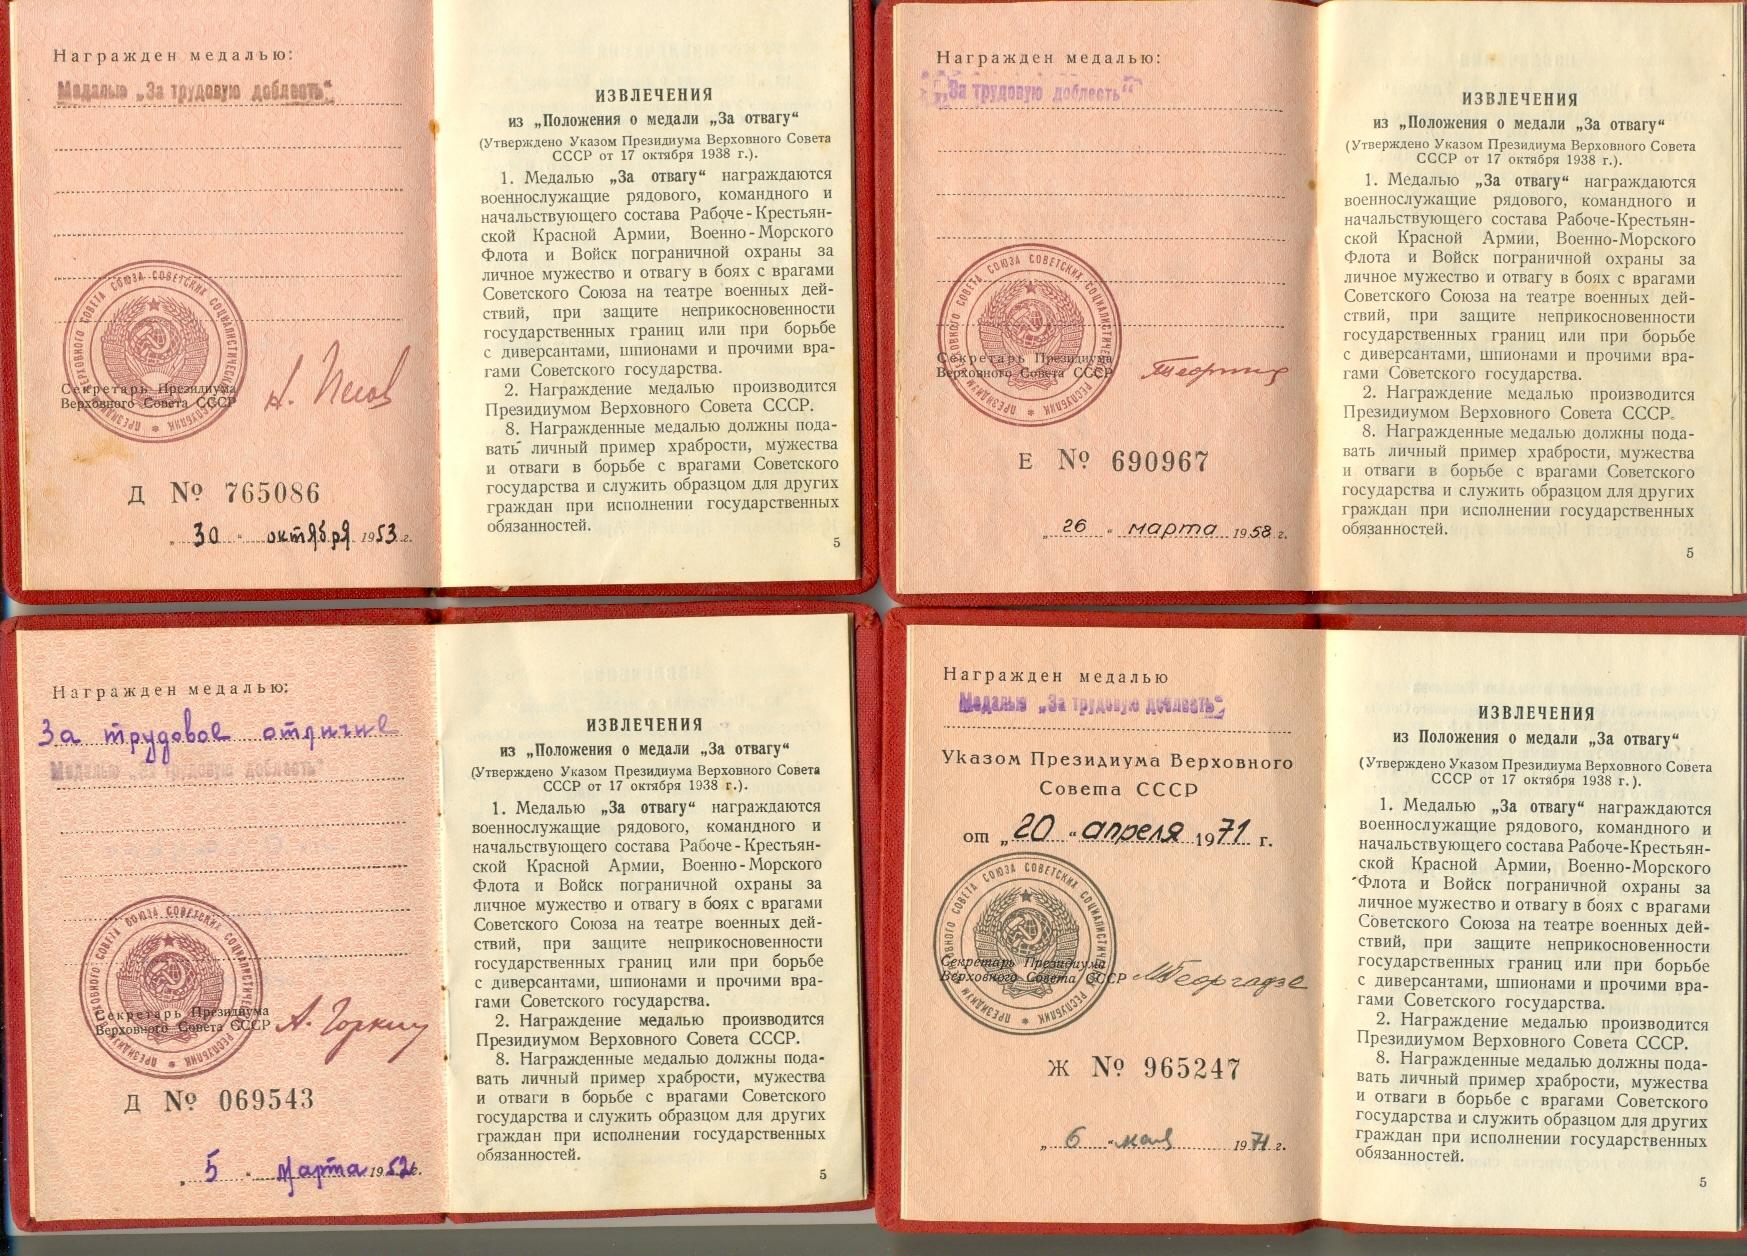 Награжден медалью:
Медалью „За трудовую доблесть“
ПРЕЗИДИУМ ВЕРХОВНОГО СОВЕТА СОЮЗА СОВЕТСКИХ СОЦИАЛИСТИЧЕСКИХ РЕСПУБЛИК
Секретарь Президиума
Верховного Совета СССР
Д № 765086
„ 30 “ октября 1953 г.
ИЗВЛЕЧЕНИЯ
из „Положения о медали „За отвагу“
(Утверждено Указом Президиума Верховного Совета
СССР от 17 октября 1938 г.).
1. Медалью „За отвагу“ награждаются
военнослужащие рядового, командного и
начальствующего состава Рабоче-Крестьян-
ской Красной Армии, Военно-Морского
Флота и Войск пограничной охраны за
личное мужество и отвагу в боях с врагами
Советского Союза на театре военных дей-
ствий, при защите неприкосновенности
государственных границ или при борьбе
с диверсантами, шпионами и прочими вра-
гами Советского государства.
2. Награждение медалью производится
Президиумом Верховного Совета СССР.
8. Награжденные медалью должны пода-
вать личный пример храбрости, мужества
и отваги в борьбе с врагами Советского
государства и служить образцом для других
граждан при исполнении государственных
обязанностей.
5
Награжден медалью:
„За трудовую доблесть“
ПРЕЗИДИУМ ВЕРХОВНОГО СОВЕТА СОЮЗА СОВЕТСКИХ СОЦИАЛИСТИЧЕСКИХ РЕСПУБЛИК
Секретарь Президиума
Верховного Совета СССР
Е № 690967
„ 26 “ марта 1958 г.
ИЗВЛЕЧЕНИЯ
из „Положения о медали „За отвагу“
(Утверждено Указом Президиума Верховного Совета
СССР от 17 октября 1938 г.).
1. Медалью „За отвагу“ награждаются
военнослужащие рядового, командного и
начальствующего состава Рабоче-Крестьян-
ской Красной Армии, Военно-Морского
Флота и Войск пограничной охраны за
личное мужество и отвагу в боях с врагами
Советского Союза на театре военных дей-
ствий, при защите неприкосновенности
государственных границ или при борьбе
с диверсантами, шпионами и прочими вра-
гами Советского государства.
2. Награждение медалью производится
Президиумом Верховного Совета СССР.
8. Награжденные медалью должны пода-
вать личный пример храбрости, мужества
и отваги в борьбе с врагами Советского
государства и служить образцом для других
граждан при исполнении государственных
обязанностей.
5
Награжден медалью:
За трудовое отличие
Медалью „За трудовую доблесть“
ПРЕЗИДИУМ ВЕРХОВНОГО СОВЕТА СОЮЗА СОВЕТСКИХ СОЦИАЛИСТИЧЕСКИХ РЕСПУБЛИК
Секретарь Президиума
Верховного Совета СССР А. Горкин
Д № 069543
„ 5 “ марта 1952 г.
ИЗВЛЕЧЕНИЯ
из „Положения о медали „За отвагу“
(Утверждено Указом Президиума Верховного Совета
СССР от 17 октября 1938 г.).
1. Медалью „За отвагу“ награждаются
военнослужащие рядового, командного и
начальствующего состава Рабоче-Крестьян-
ской Красной Армии, Военно-Морского
Флота и Войск пограничной охраны за
личное мужество и отвагу в боях с врагами
Советского Союза на театре военных дей-
ствий, при защите неприкосновенности
государственных границ или при борьбе
с диверсантами, шпионами и прочими вра-
гами Советского государства.
2. Награждение медалью производится
Президиумом Верховного Совета СССР.
8. Награжденные медалью должны пода-
вать личный пример храбрости, мужества
и отваги в борьбе с врагами Советского
государства и служить образцом для других
граждан при исполнении государственных
обязанностей.
5
Награжден медалью
Медалью „За трудовую доблесть“
Указом Президиума Верховного
Совета СССР
от „ 20 “ апреля 1971 г.
ПРЕЗИДИУМ ВЕРХОВНОГО СОВЕТА СОЮЗА СОВЕТСКИХ СОЦИАЛИСТИЧЕСКИХ РЕСПУБЛИК
Секретарь Президиума
Верховного Совета СССР М Георгадзе
Ж № 965247
„ 6 “ мая 1971 г.
ИЗВЛЕЧЕНИЯ
из Положения о медали „За отвагу“
(Утверждено Указом Президиума Верховного Совета
СССР от 17 октября 1938 г.).
1. Медалью „За отвагу“ награждаются
военнослужащие рядового, командного и
начальствующего состава Рабоче-Крестьян-
ской Красной Армии, Военно-Морского
Флота и Войск пограничной охраны за
личное мужество и отвагу в боях с врагами
Советского Союза на театре военных дей-
ствий, при защите неприкосновенности
государственных границ или при борьбе
с диверсантами, шпионами и прочими вра-
гами Советского государства.
2. Награждение медалью производится
Президиумом Верховного Совета СССР.
8. Награжденные медалью должны пода-
вать личный пример храбрости, мужества
и отваги в борьбе с врагами Советского
государства и служить образцом для других
граждан при исполнении государственных
обязанностей.
5